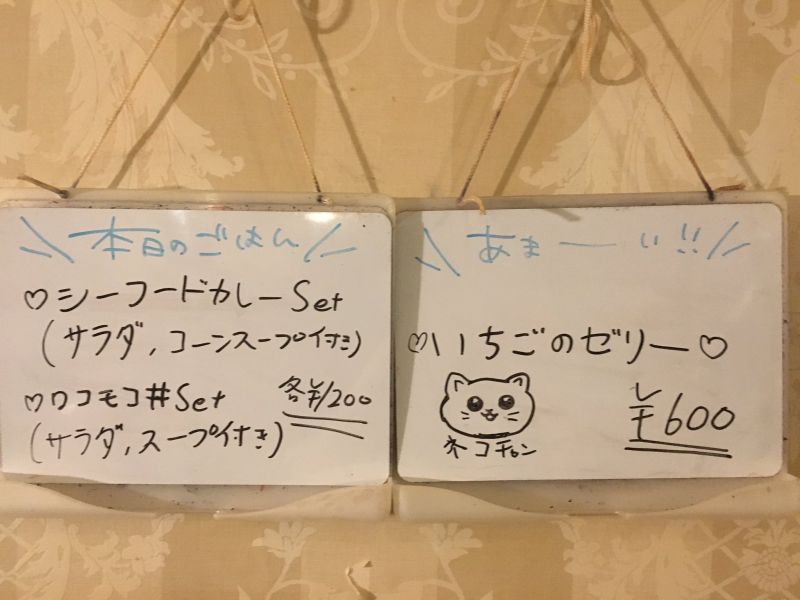 本日のごはん
♡シーフードカレーSet
(サラダ,コーンスープ付き)
♡ロコモコ丼Set
各¥1200
(サラダ,スープ付き)
あまーい!!
♡いちごのゼリー♡
ネコチャン
¥600